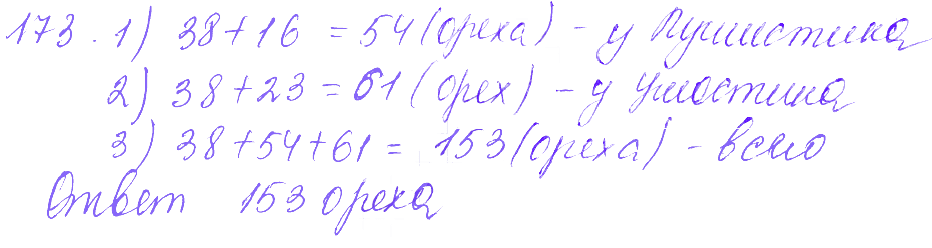 173. 1) 38+16 = 54 (ореха) - у Пушистика
2) 38+23 = 61 (орех) - у Умостика
3) 38+54+61 = 153 (ореха) - всего
Ответ 153 ореха